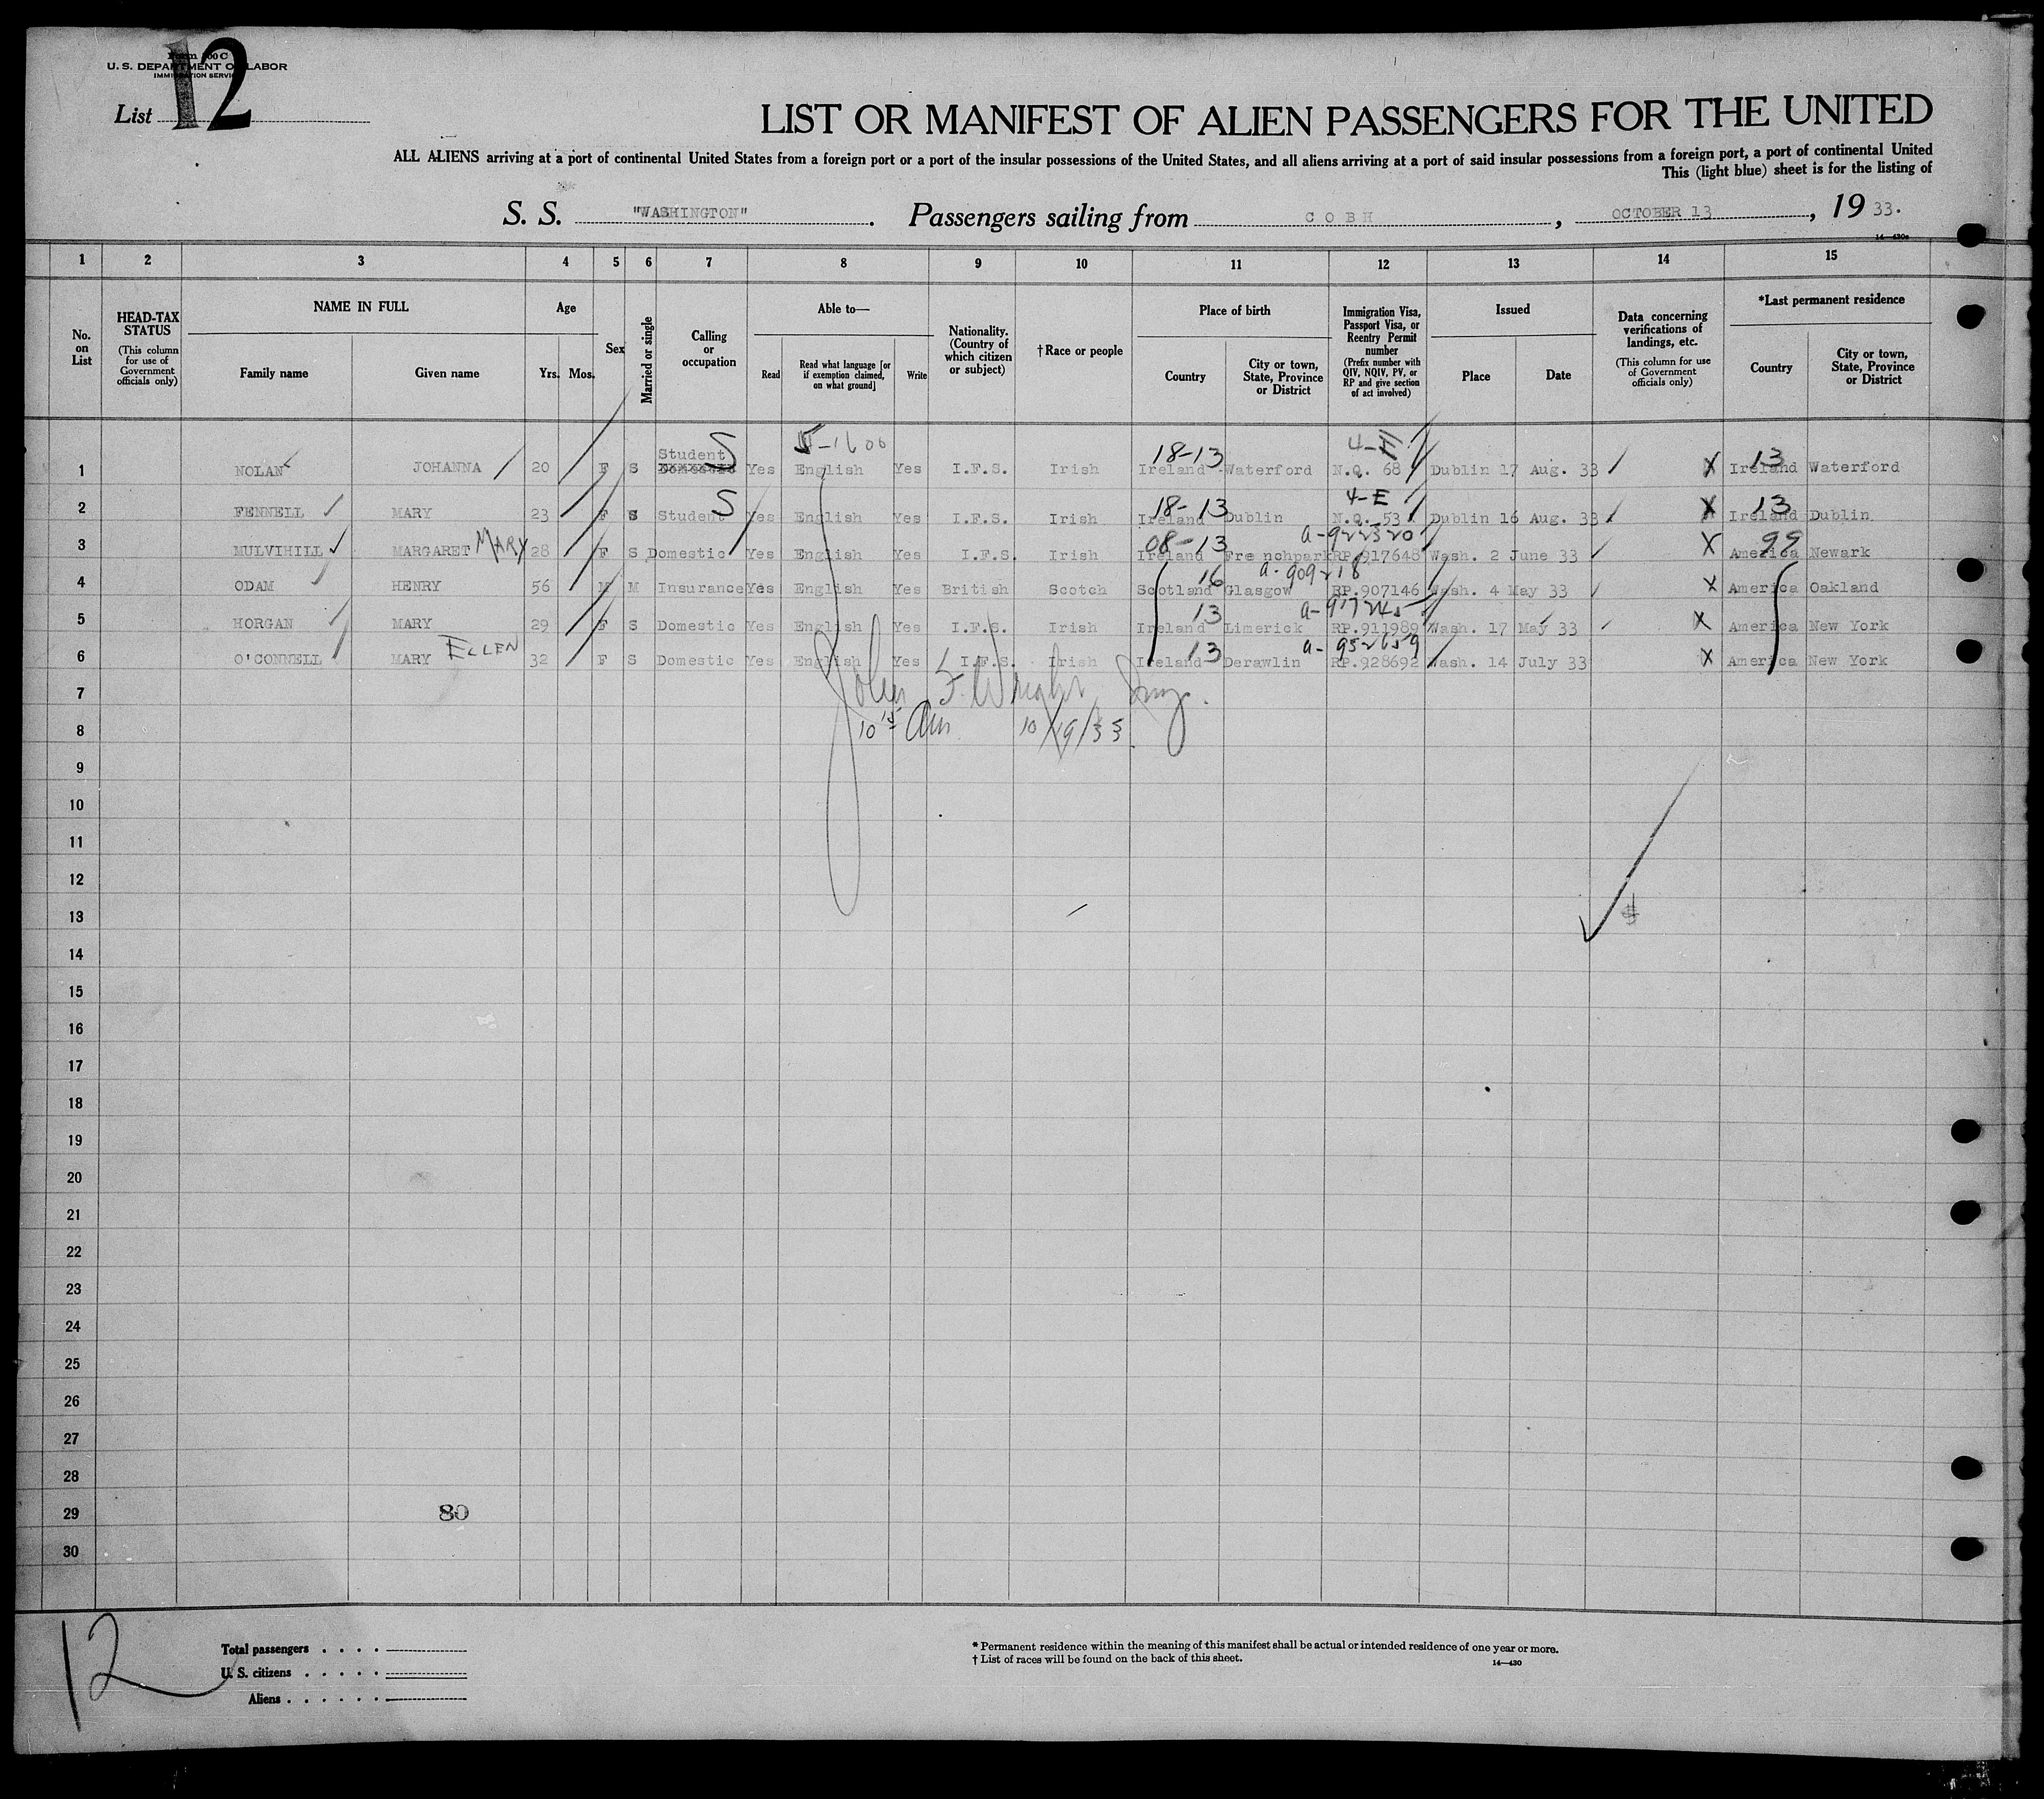 Form 500 C
U. S. DEPARTMENT OF LABOR
IMMIGRATION SERVICE
List 12
LIST OR MANIFEST OF ALIEN PASSENGERS FOR THE UNITED
ALL ALIENS arriving at a port of continental United States from a foreign port or a port of the insular possessions of the United States, and all aliens arriving at a port of said insular possessions from a foreign port, a port of continental United
This (light blue) sheet is for the listing of
S. S. "WASHINGTON". Passengers sailing from COBH, OCTOBER 13, 1933.
1 2 3 4 5 6 7 8 9 10 11 12 13 14 15
No. on List
HEAD-TAX STATUS (This column for use of Government officials only)
NAME IN FULL Family name Given name
Age Yrs. Mos.
Sex
Married or single
Calling or occupation
Able to— Read Read what language [or if exemption claimed, on what ground] Write
Nationality. (Country of which citizen or subject)
†Race or people
Place of birth Country City or town, State, Province or District
Immigration Visa, Passport Visa, or Reentry Permit number (Prefix number with QIV, NQIV, PV, or RP and give section of act involved)
Issued Place Date
Data concerning verifications of landings, etc. (This column for use of Government officials only)
*Last permanent residence Country City or town, State, Province or District
Student S 5-1600 18-13 4-E 13
1 NOLAN JOHANNA 20 F S Domestic Yes English Yes I.F.S. Irish Ireland Waterford N.Q. 68 Dublin 17 Aug. 33 X Ireland Waterford
S 18-13 4-E 13
2 FENNELL MARY 23 F S Student Yes English Yes I.F.S. Irish Ireland Dublin N.Q. 53 Dublin 16 Aug. 33 X Ireland Dublin
08-13 a-922320 99
3 MULVIHILL MARGARET MARY 28 F S Domestic Yes English Yes I.F.S. Irish Ireland Frenchpark RP.917648 Wash. 2 June 33 X America Newark
16 a-909218
4 ODAM HENRY 56 M M Insurance Yes English Yes British Scotch Scotland Glasgow RP.907146 Wash. 4 May 33 X America Oakland
13
5 HORGAN MARY 29 F S Domestic Yes English Yes I.F.S. Irish Ireland Limerick RP.911989 Wash. 17 May 33 X America New York
13 a-952659
6 O'CONNELL MARY ELLEN 32 F S Domestic Yes English Yes I.F.S. Irish Ireland Derawlin RP.928692 Wash. 14 July 33 X America New York
7 John F. Wright
8 10 15 Am 10/19/33
9
10
11
12
13
14
15
16
17
18
19
20
21
22
23
24
25
26
27
28
29 80
30
12
Total passengers
U. S. citizens
Aliens
* Permanent residence within the meaning of this manifest shall be actual or intended residence of one year or more.
† List of races will be found on the back of this sheet.
14—430